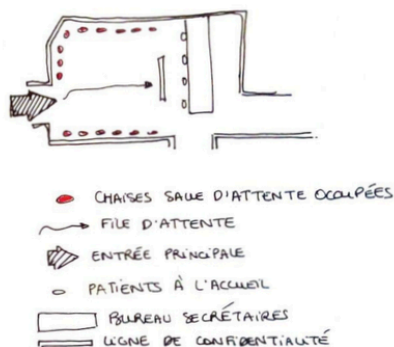 CHAISES SALLE D'ATTENTE OCCUPÉES
FILE D'ATTENTE
ENTRÉE PRINCIPALE
PATIENTS À L'ACCUEIL
BUREAU SECRÉTAIRES
LIGNE DE CONFIDENTIALITÉ